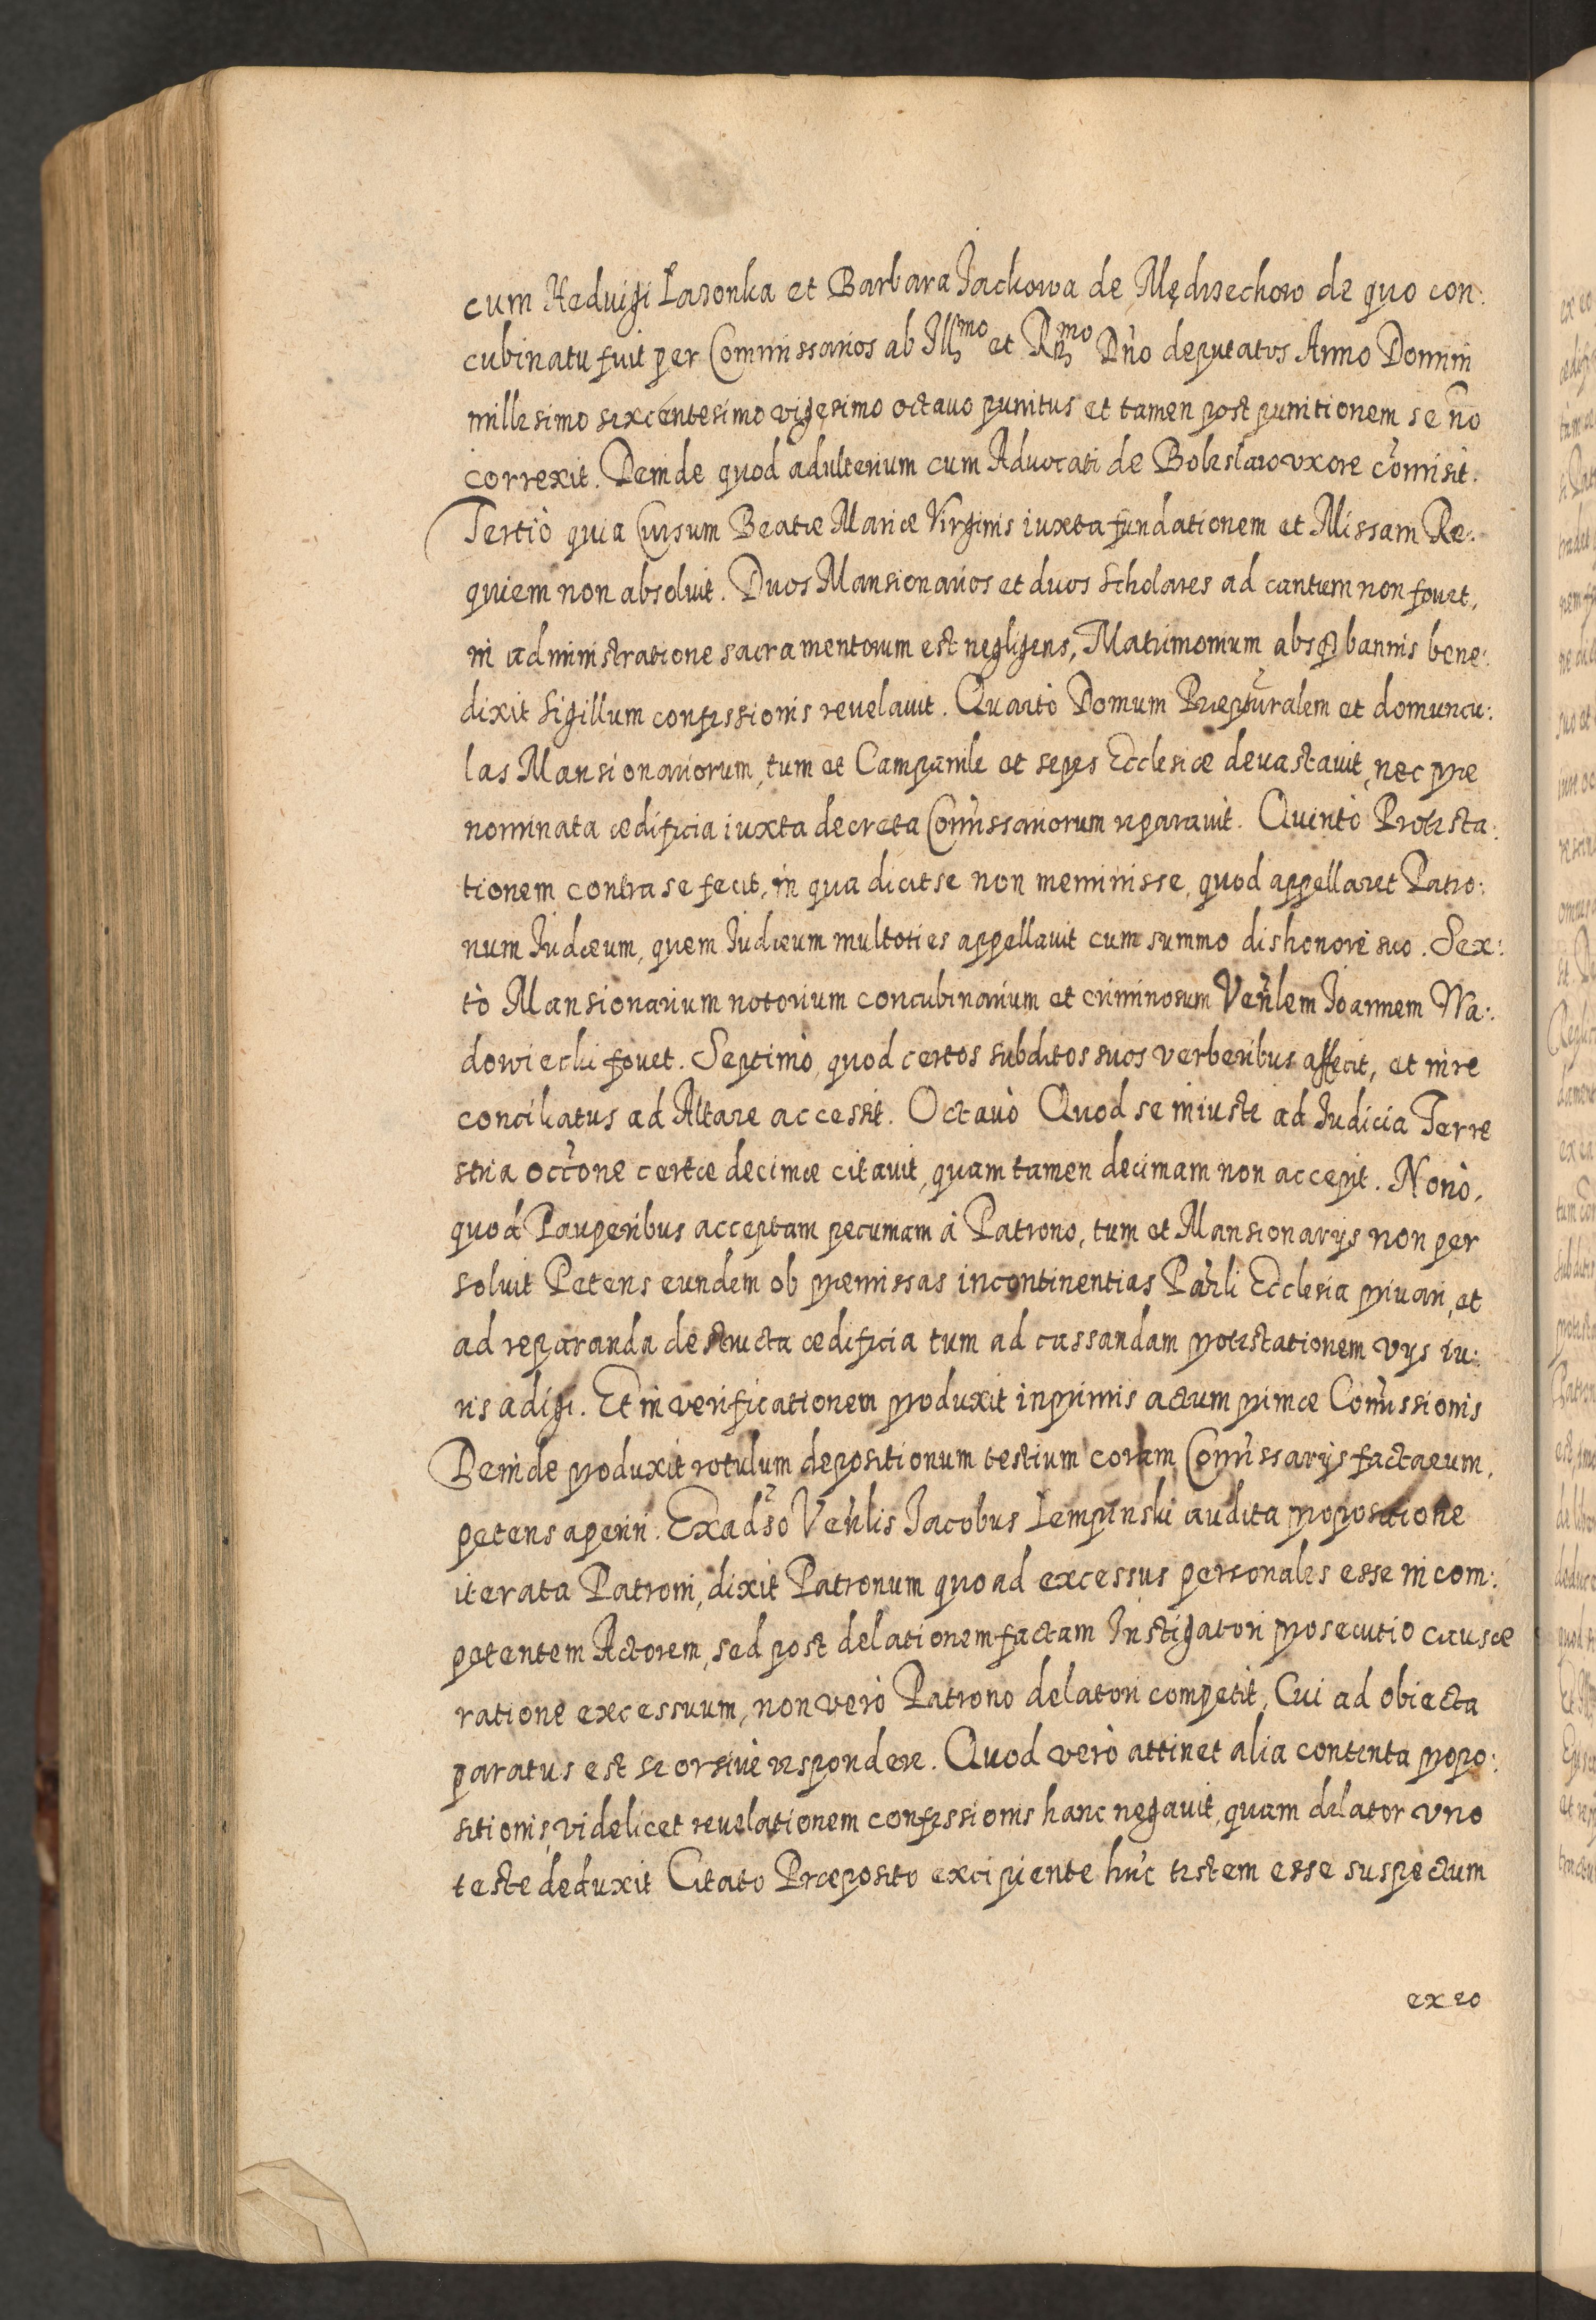 cum Heduigi Łasonka et Barbara Jackowa de Mędrzechow de quo con:
cubinatu fuit per Commissarios ab Illmo et Rmo Dno deputatos Anno Domini
millesimo sexcentesimo vigesimo octauo punitus et tamen post punitionem se no
correxit. Deinde quod adulterium cum Advocati de Boleslaw vxore comisit.
Tertiò quia Cursum Beatæ Mariæ Virginis iuxta fundationem et Missam Re:
quiem non absoluit. Duos Mansionarios et duos Scholares ad cantum non fouet,
in administratione sacramentorum est negligens, Matrimonium absq bannis bene:
dixit Sigillum confessionis reuelauit. Quartò Domum Præpturalem et domuncu:
las Mansionariorum, tum et Campanile et sepes Ecclesiæ deuastauit, nec præ
nominata ædificia iuxta decreta Comissariorum reparauit. Quintò Protesta:
tionem contra se fecit, in qua dicit se non meminisse, quod appellaret Patro:
num Judæum, quem Judæum multoties appellauit cum summo dishonore suo. Sex:
tò Mansionarium notorium concubinarium et criminosum Venlem Joannem Wa:
dowiecki fouet. Septimò quod certos subditos suos verberibus affecit, et inre
conciliatus ad Altare accessit. Octauò Quod se iniuste ad Judicia Terre
stria occone certæ decimæ citauit, quam tamen decimam non accepit. Nonò,
quod Pauperibus acceptam pecuniam à Patrono, tum et Mansionarijs non per
soluit Petens eundem ob præmissas incontinentias Parli Ecclesia priuari, et
ad reparanda destructa ædificia tum ad cassandam protestationem vijs iu:
ris adigi. Et in verificationem produxit inprimis actum primæ Comissionis
Deinde produxit rotulum depositionum testium coram Comissarijs factarum,
petens aperiri. Ex adso Venlis Jacobus Lempinski audita propositione
iterata Patroni, dixit Patronum quoad excessus personales esse incom:
petentem Actorem, sed post delationem factam Instigatori prosecutio causæ
ratione excessuum, non verò Patrono delatori competit, Cui ad obiecta
paratus est seorsiuè respondere. Quod verò attinet alia contenta propo:
sitionis, videlicet reuelationem confessionis hanc negauit, quam delator vno
teste deduxit Citato Præposito excipiente hunc testem esse suspectum
ex eo